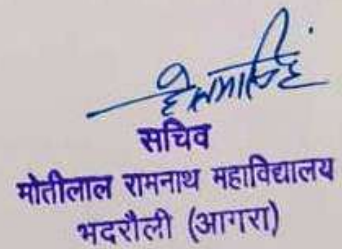 सचिव
मोतीलाल रामनाथ महाविद्यालय
भदरौली (आगरा)